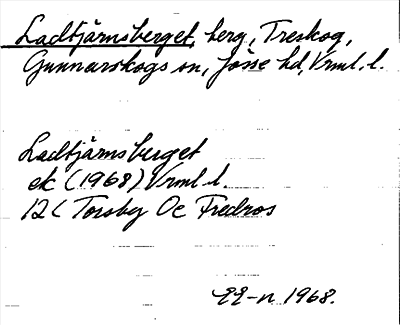 Ladtjärnsberget, berg, Treskog,
Gunnarskogs sn, Jösse hd, Vrml. l.
Ladtjärnsberget
ek (1968) Vrml l.
12C Torsby Oc Fredros
1968.